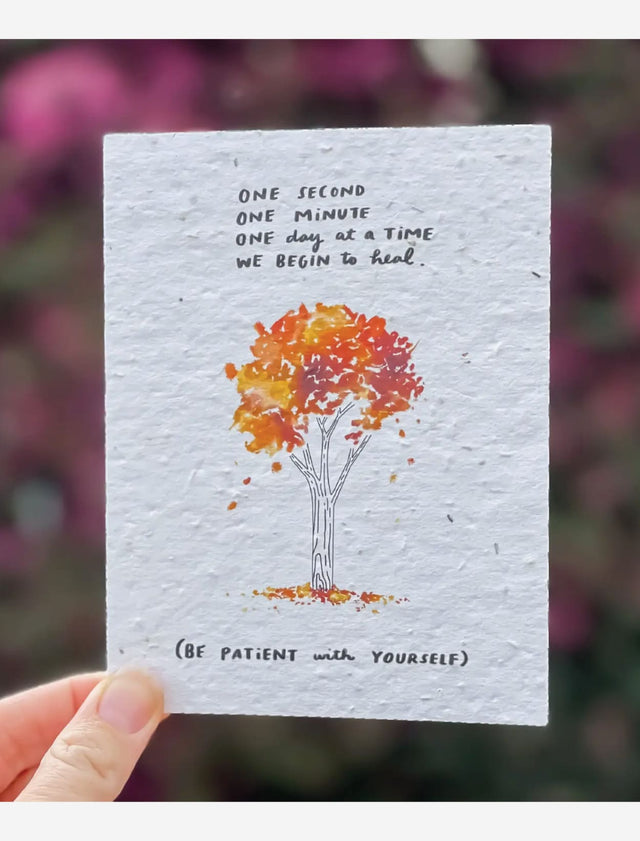 ONE SECOND
ONE MINUTE
ONE day at a TIME
WE BEGIN to heal.
(BE PATIENT with YOURSELF)